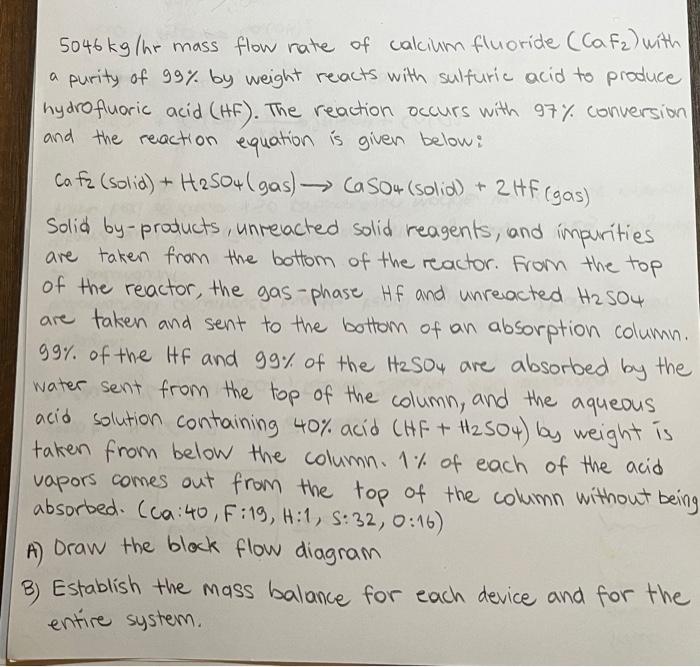 5046 kg/hr mass flow rate of calcium fluoride (CaF2) with
a purity of 99% by weight reacts with sulfuric acid to produce
hydrofluoric acid (HF). The reaction occurs with 97% conversion
and the reaction equation is given below:
Caf2 (solid) + H2SO4 (gas) → CaSO4 (solid) + 2HF (gas)
Solid by-products, unreacted solid reagents, and impurities
are taken from the bottom of the reactor. From the top
of the reactor, the gas-phase Hf and unreacted H2SO4
are taken and sent to the bottom of an absorption column.
99% of the Hf and 99% of the H2SO4 are absorbed by the
water sent from the top of the column, and the aqueous
acid solution containing 40% acid (HF + H2SO4) by weight is
taken from below the column. 1% of each of the acid
vapors comes out from the top of the column without being
absorbed. (Ca:40, F:19, H:1, S:32, O:16)
A) Draw the block flow diagram
B) Establish the mass balance for each device and for the
entire system.